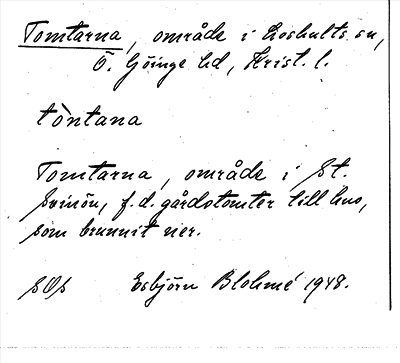 Tomtarna, område i Loshults sn,
Ö. Göinge hd, Krist. l.
tòntana
Tomtarna, område i St.
Svinön, f.d. gårdstomter till hus,
som brunnit ner.
SOS Esbjörn Blohmé 1948.